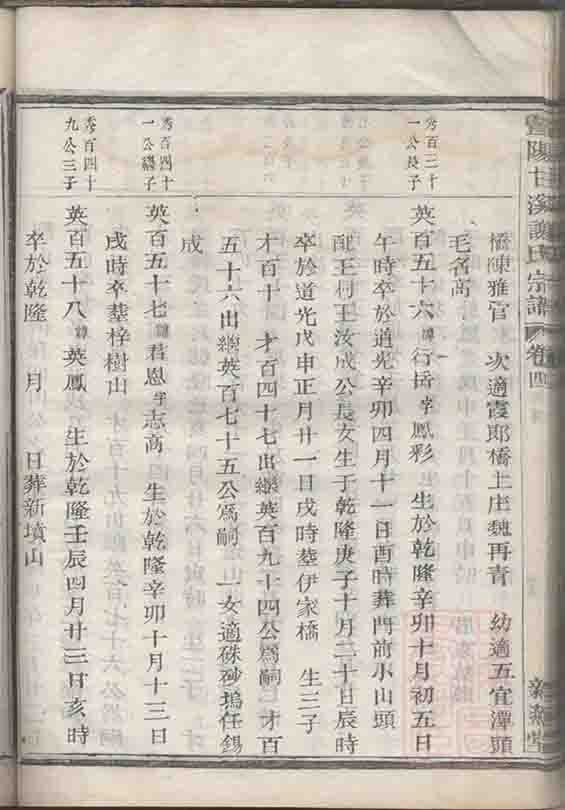 暨陽甘溪譙氏宗譜 卷四
橋陳雅官 次適霞郎橋上庄魏再青 幼適五宜潭頭
毛名高
秀百二十
一公長子
英百五十六諱行岳字鳳彩 生於乾隆辛卯十月初五日
午時卒於道光辛卯四月十一日酉時葬門前小山頭
配王村王汝成公長女生于乾隆庚子十月二十日辰時
卒於道光戊申正月廿一日戌時塟伊家橋 生三子
才百十 才百四十七出繼英百九十四公爲嗣 才百
五十六出繼英百七十五公爲嗣 一女適硃砂塢任錫
成
秀百四十
一公繼子
英百五十七諱君恩字志高 生於乾隆辛卯十月十三日
戌時卒塟梓樹山
秀百四十
九公三子
英百五十八諱英鳳 生於乾隆壬辰四月廿三日亥時
卒於乾隆 月 日葬新墳山